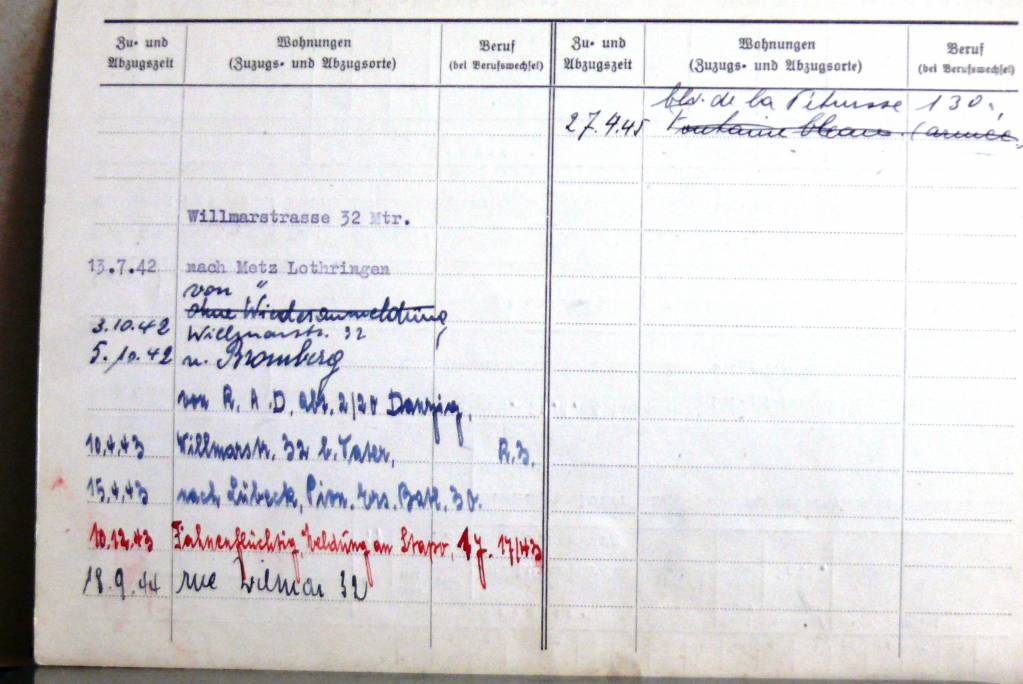 Zu- und Abzugszeit
Wohnungen (Zuzugs- und Abzugsorte)
Beruf (bei Berufswechsel)
Willmarstrasse 32 Mtr.
13.7.42 nach Metz Lothringen
von "
ohne Wiederanmeldung
3.10.42 Willmarstr. 32
5.10.42 n. Bromberg
von R.A.D. Abt. 2/20 Danzig.
10.4.43 Willmarstr. 32 b. Vater, R.Z.
15.4.43 nach Lübeck, Pion. Ers. Batl. 30.
10.12.43 Fahnenflüchtig, Meldung an Stapo, 17/43
18.9.44 rue Wilmar 32
Zu- und Abzugszeit
Wohnungen (Zuzugs- und Abzugsorte)
Beruf (bei Berufswechsel)
blv. de la Pétrusse 130.
27.4.45 Fontainebleau. (armée.